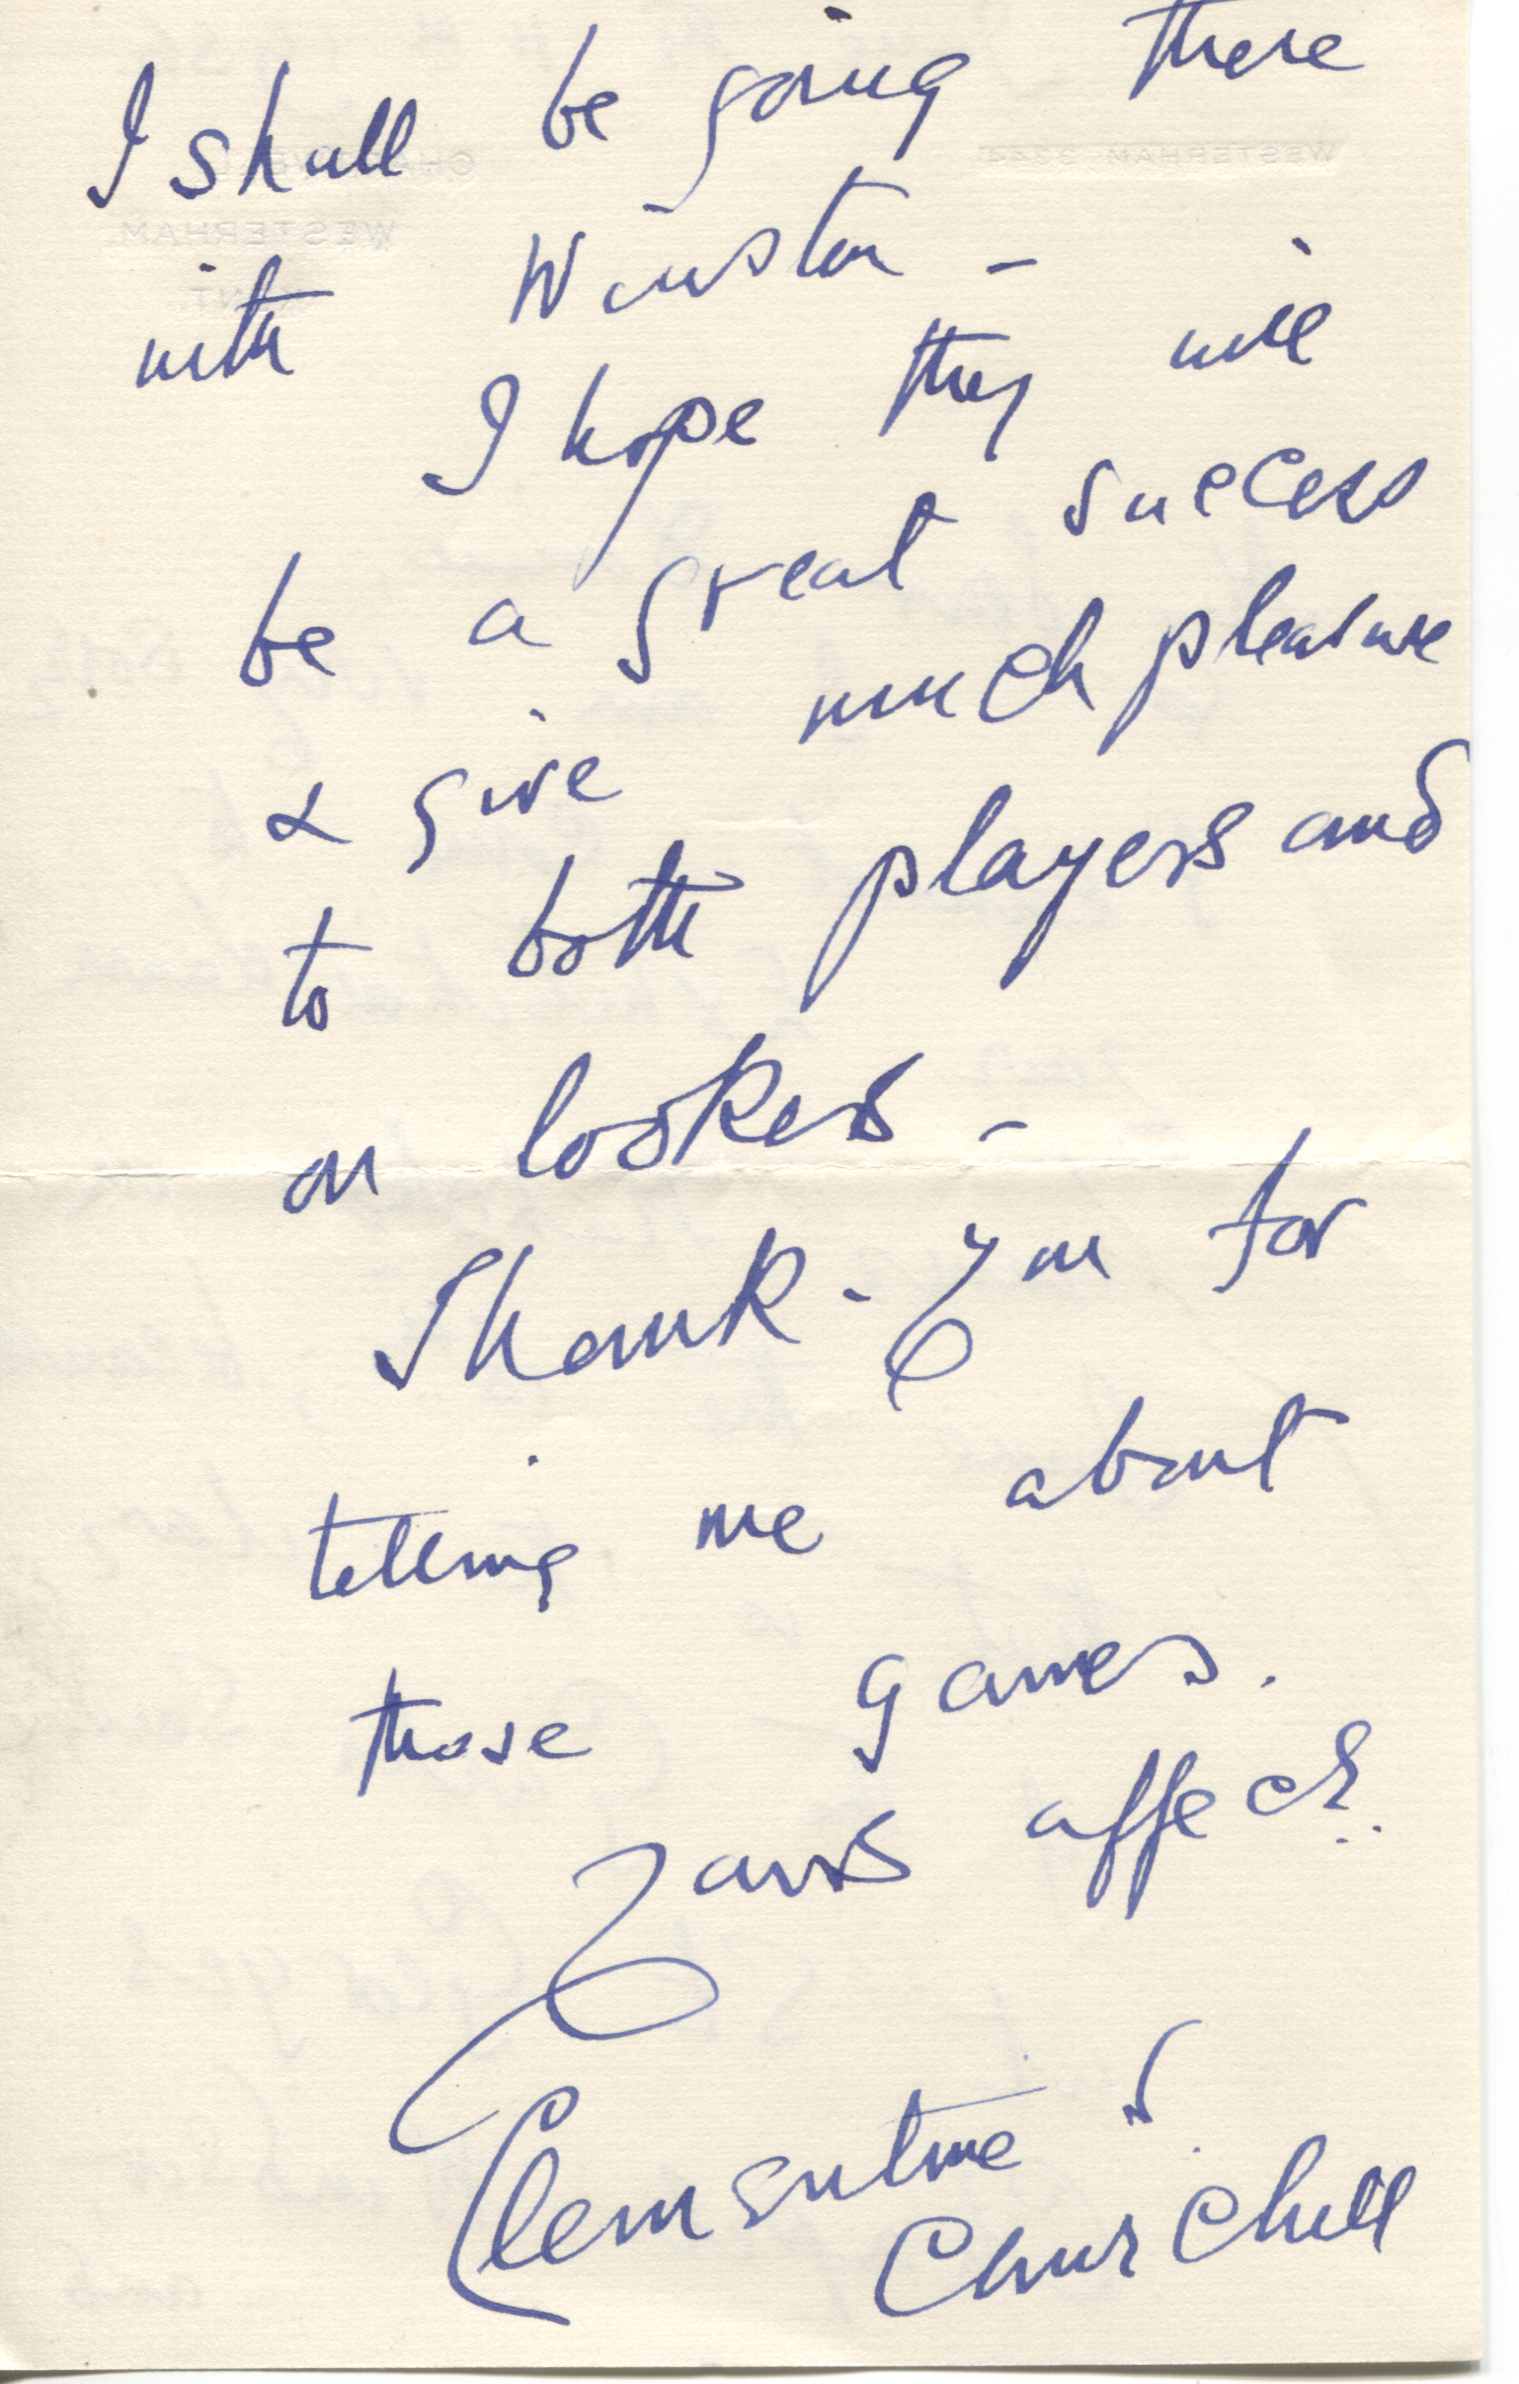 I shall be going there
with Winston -
I hope they will
be a great success
& give much pleasure
to both players and
on lookers -
Thank-you for
telling me about
those games.
Yours affect:
Clementine S.
Churchill
CHARTWELL
WESTERHAM
KENT.
WESTERHAM 3344